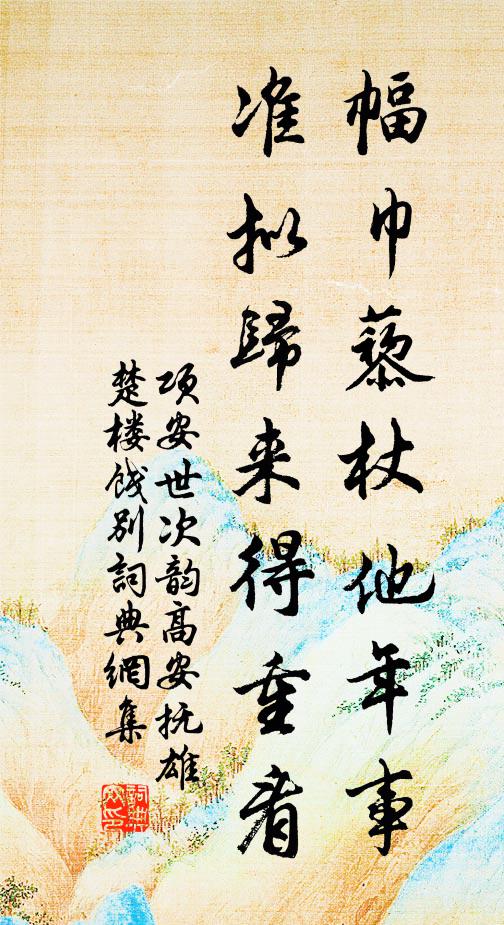 幅巾藜杖他年事
准拟歸来得重看
项安世次韵高安抚雄
楚楼餞别詞典網集